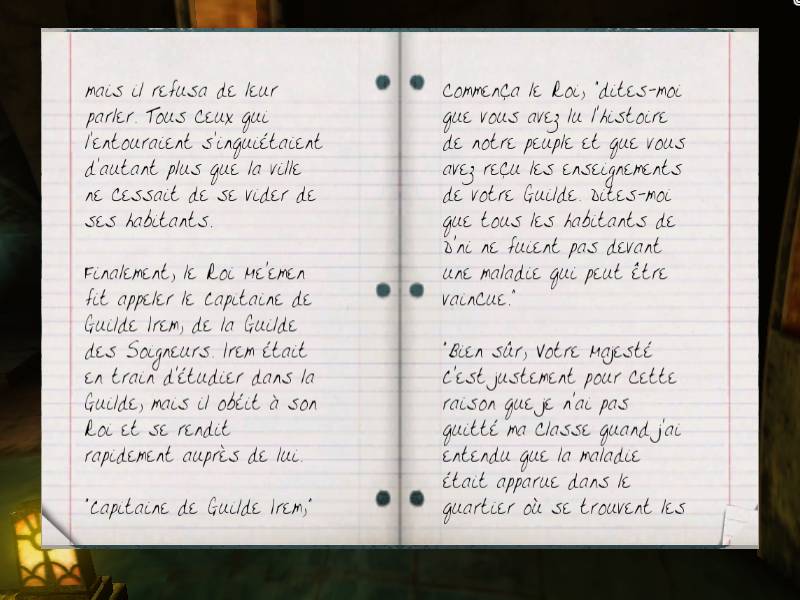 mais il refusa de leur
parler. Tous ceux qui
l'entouraient s'inquiétaient
d'autant plus que la ville
ne cessait de se vider de
ses habitants.
Finalement, le Roi Me'emen
fit appeler le Capitaine de
Guilde Irem, de la Guilde
des Soigneurs. Irem était
en train d'étudier dans la
Guilde, mais il obéit à son
Roi et se rendit
rapidement auprès de lui.
"Capitaine de Guilde Irem,"
commença le Roi, "dites-moi
que vous avez lu l'histoire
de notre peuple et que vous
avez reçu les enseignements
de votre Guilde. Dites-moi
que tous les habitants de
D'ni ne fuient pas devant
une maladie qui peut être
vaincue."
"Bien sûr, Votre Majesté
c'est justement pour cette
raison que je n'ai pas
quitté ma classe quand j'ai
entendu que la maladie
était apparue dans le
quartier où se trouvent les